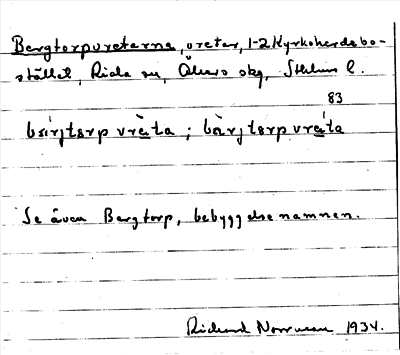 Bergtorpvretarna, vretar, 1-2 Kyrkoherdebo-
stället, Rida sn, Åkers obg, Sthlms l.
83
bàrjtɛrp vrǽta ; bàrjtɛrp vrǽta
Se även Bergtorp, bebyggelsenamnen.
Richard Norrman 1934.